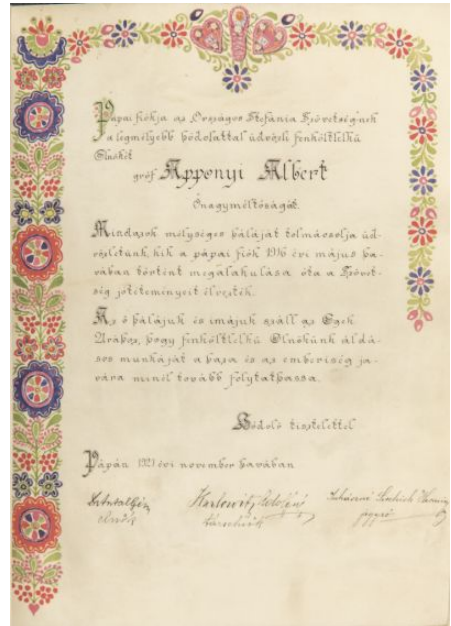 Pápai fiókja az Országos Stefánia Szövetségnek
a legmélyebb hódolattal üdvözli fenköltlelkü
Elnökét
gróf Apponyi Albert
Őnagyméltóságát.
Mindazok mélységes háláját tolmácsolja üd-
vözletünk, kik a pápai fiók 1916 évi május ha-
vában történt megalakulása óta a Szövet-
ség jótéteményeit élvezték.
Az ő hálájuk és imájuk száll az Egek
Urához, hogy fenköltlelkü Elnökünk áldá-
sos munkáját a haza és az emberiség ja-
vára minél tovább folytathassa.
Hódoló tisztelettel
Pápán 1921 évi november havában
Antal Géza
elnök
jegyző